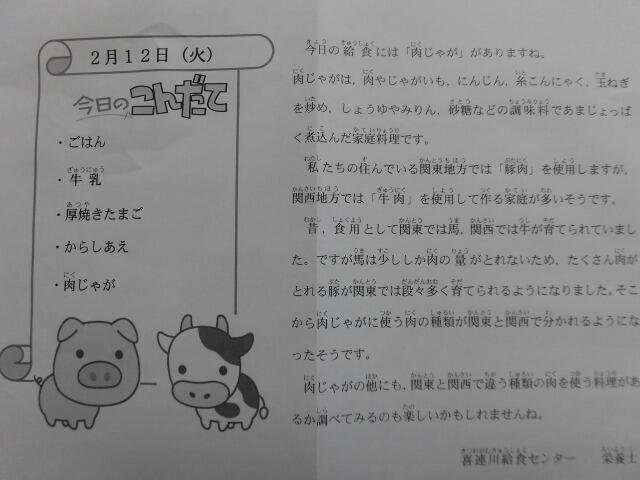 2月12日（火）
今日のこんだて
・ごはん
・牛乳
・厚焼きたまご
・からしあえ
・肉じゃが
今日の給食には「肉じゃが」がありますね。
肉じゃがは，肉やじゃがいも，にんじん，糸こんにゃく，玉ねぎ
を炒め，しょうゆやみりん，砂糖などの調味料であまじょっぱ
く煮込んだ家庭料理です。
私たちの住んでいる関東地方では「豚肉」を使用しますが，
関西地方では「牛肉」を使用して作る家庭が多いそうです。
昔，食用として関東では馬，関西では牛が育てられていまし
た。ですが馬は少ししか肉の量がとれないため，たくさん肉が
とれる豚が関東では段々多く育てられるようになりました。そこ
から肉じゃがに使う肉の種類が関東と関西で分かれるようにな
ったそうです。
肉じゃがの他にも，関東と関西で違う種類の肉を使う料理があ
るか調べてみるのも楽しいかもしれませんね。
喜連川給食センター　栄養士